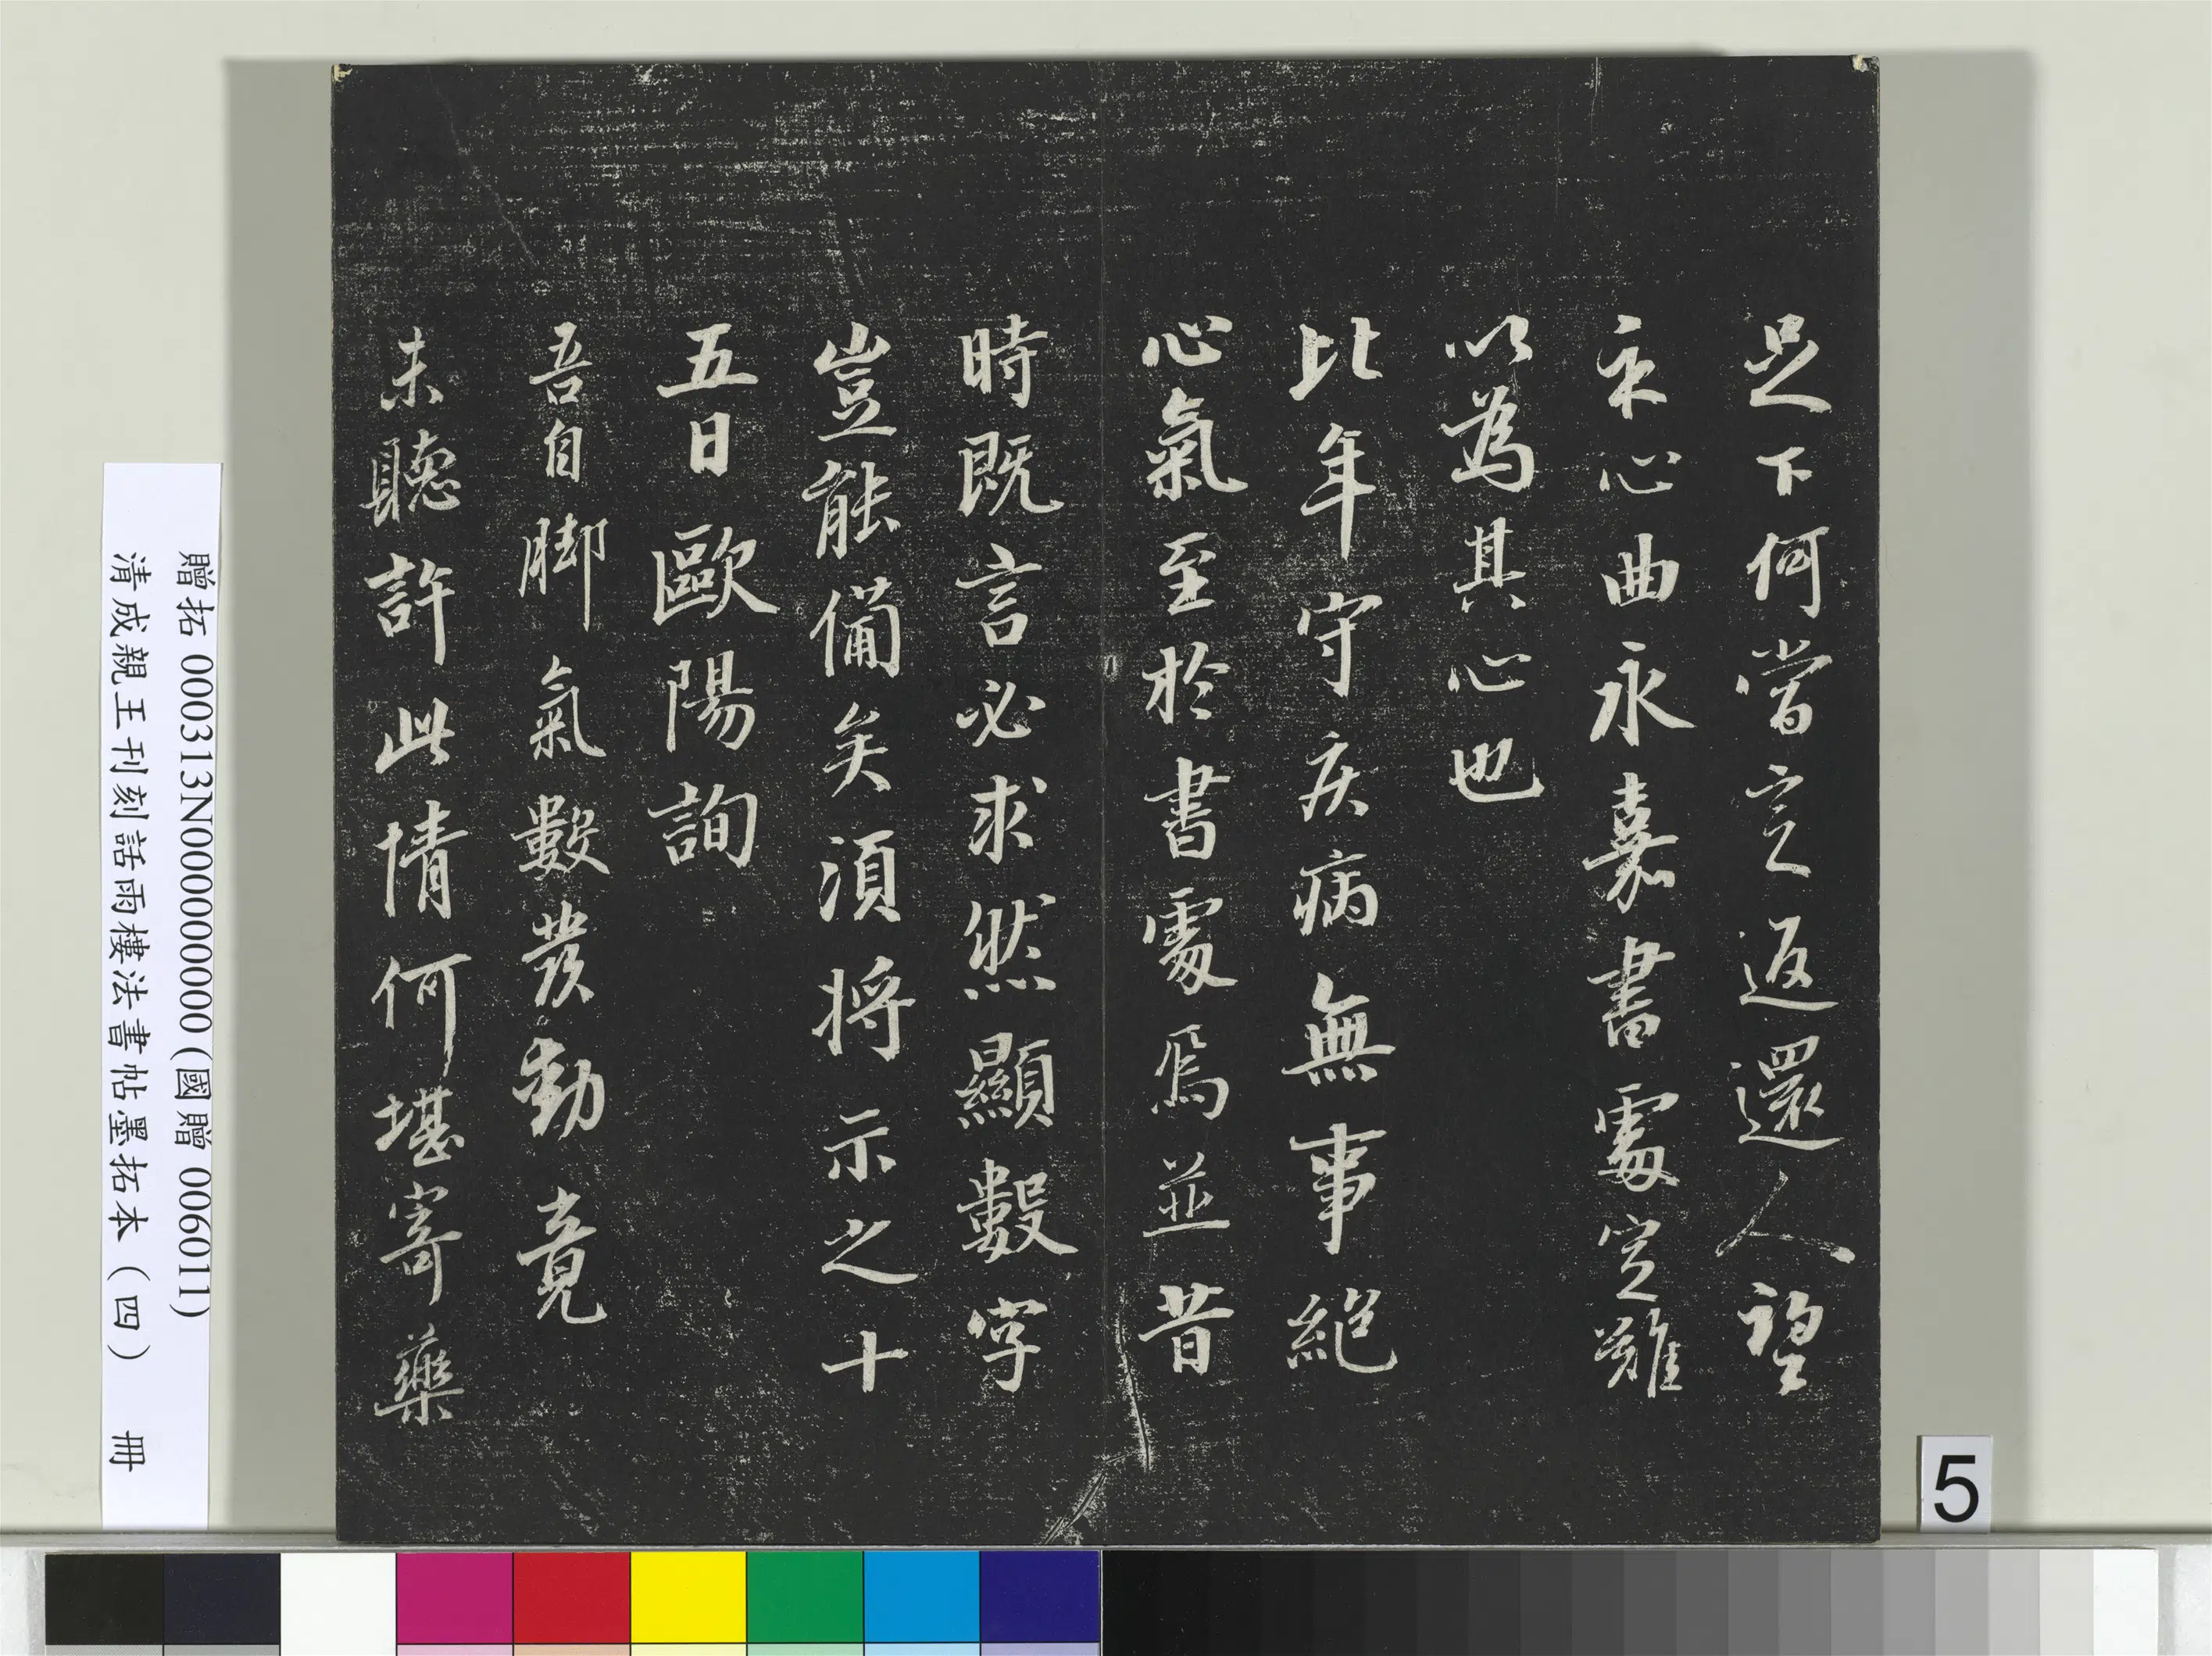 足下何當定返還人望
示心曲永嘉書處定難
以為其心也
比年守疾病無事絕
心氣至於書處焉並昔
時既言必求然顯數字
豈能備矣須將示之十
五日歐陽詢
吾自脚氣數發動竟
未聽許此情何堪寄藥
贈拓 000313N000000000 (國贈 006011)
清成親王刊刻話雨樓法書帖墨拓本（四） 冊
5